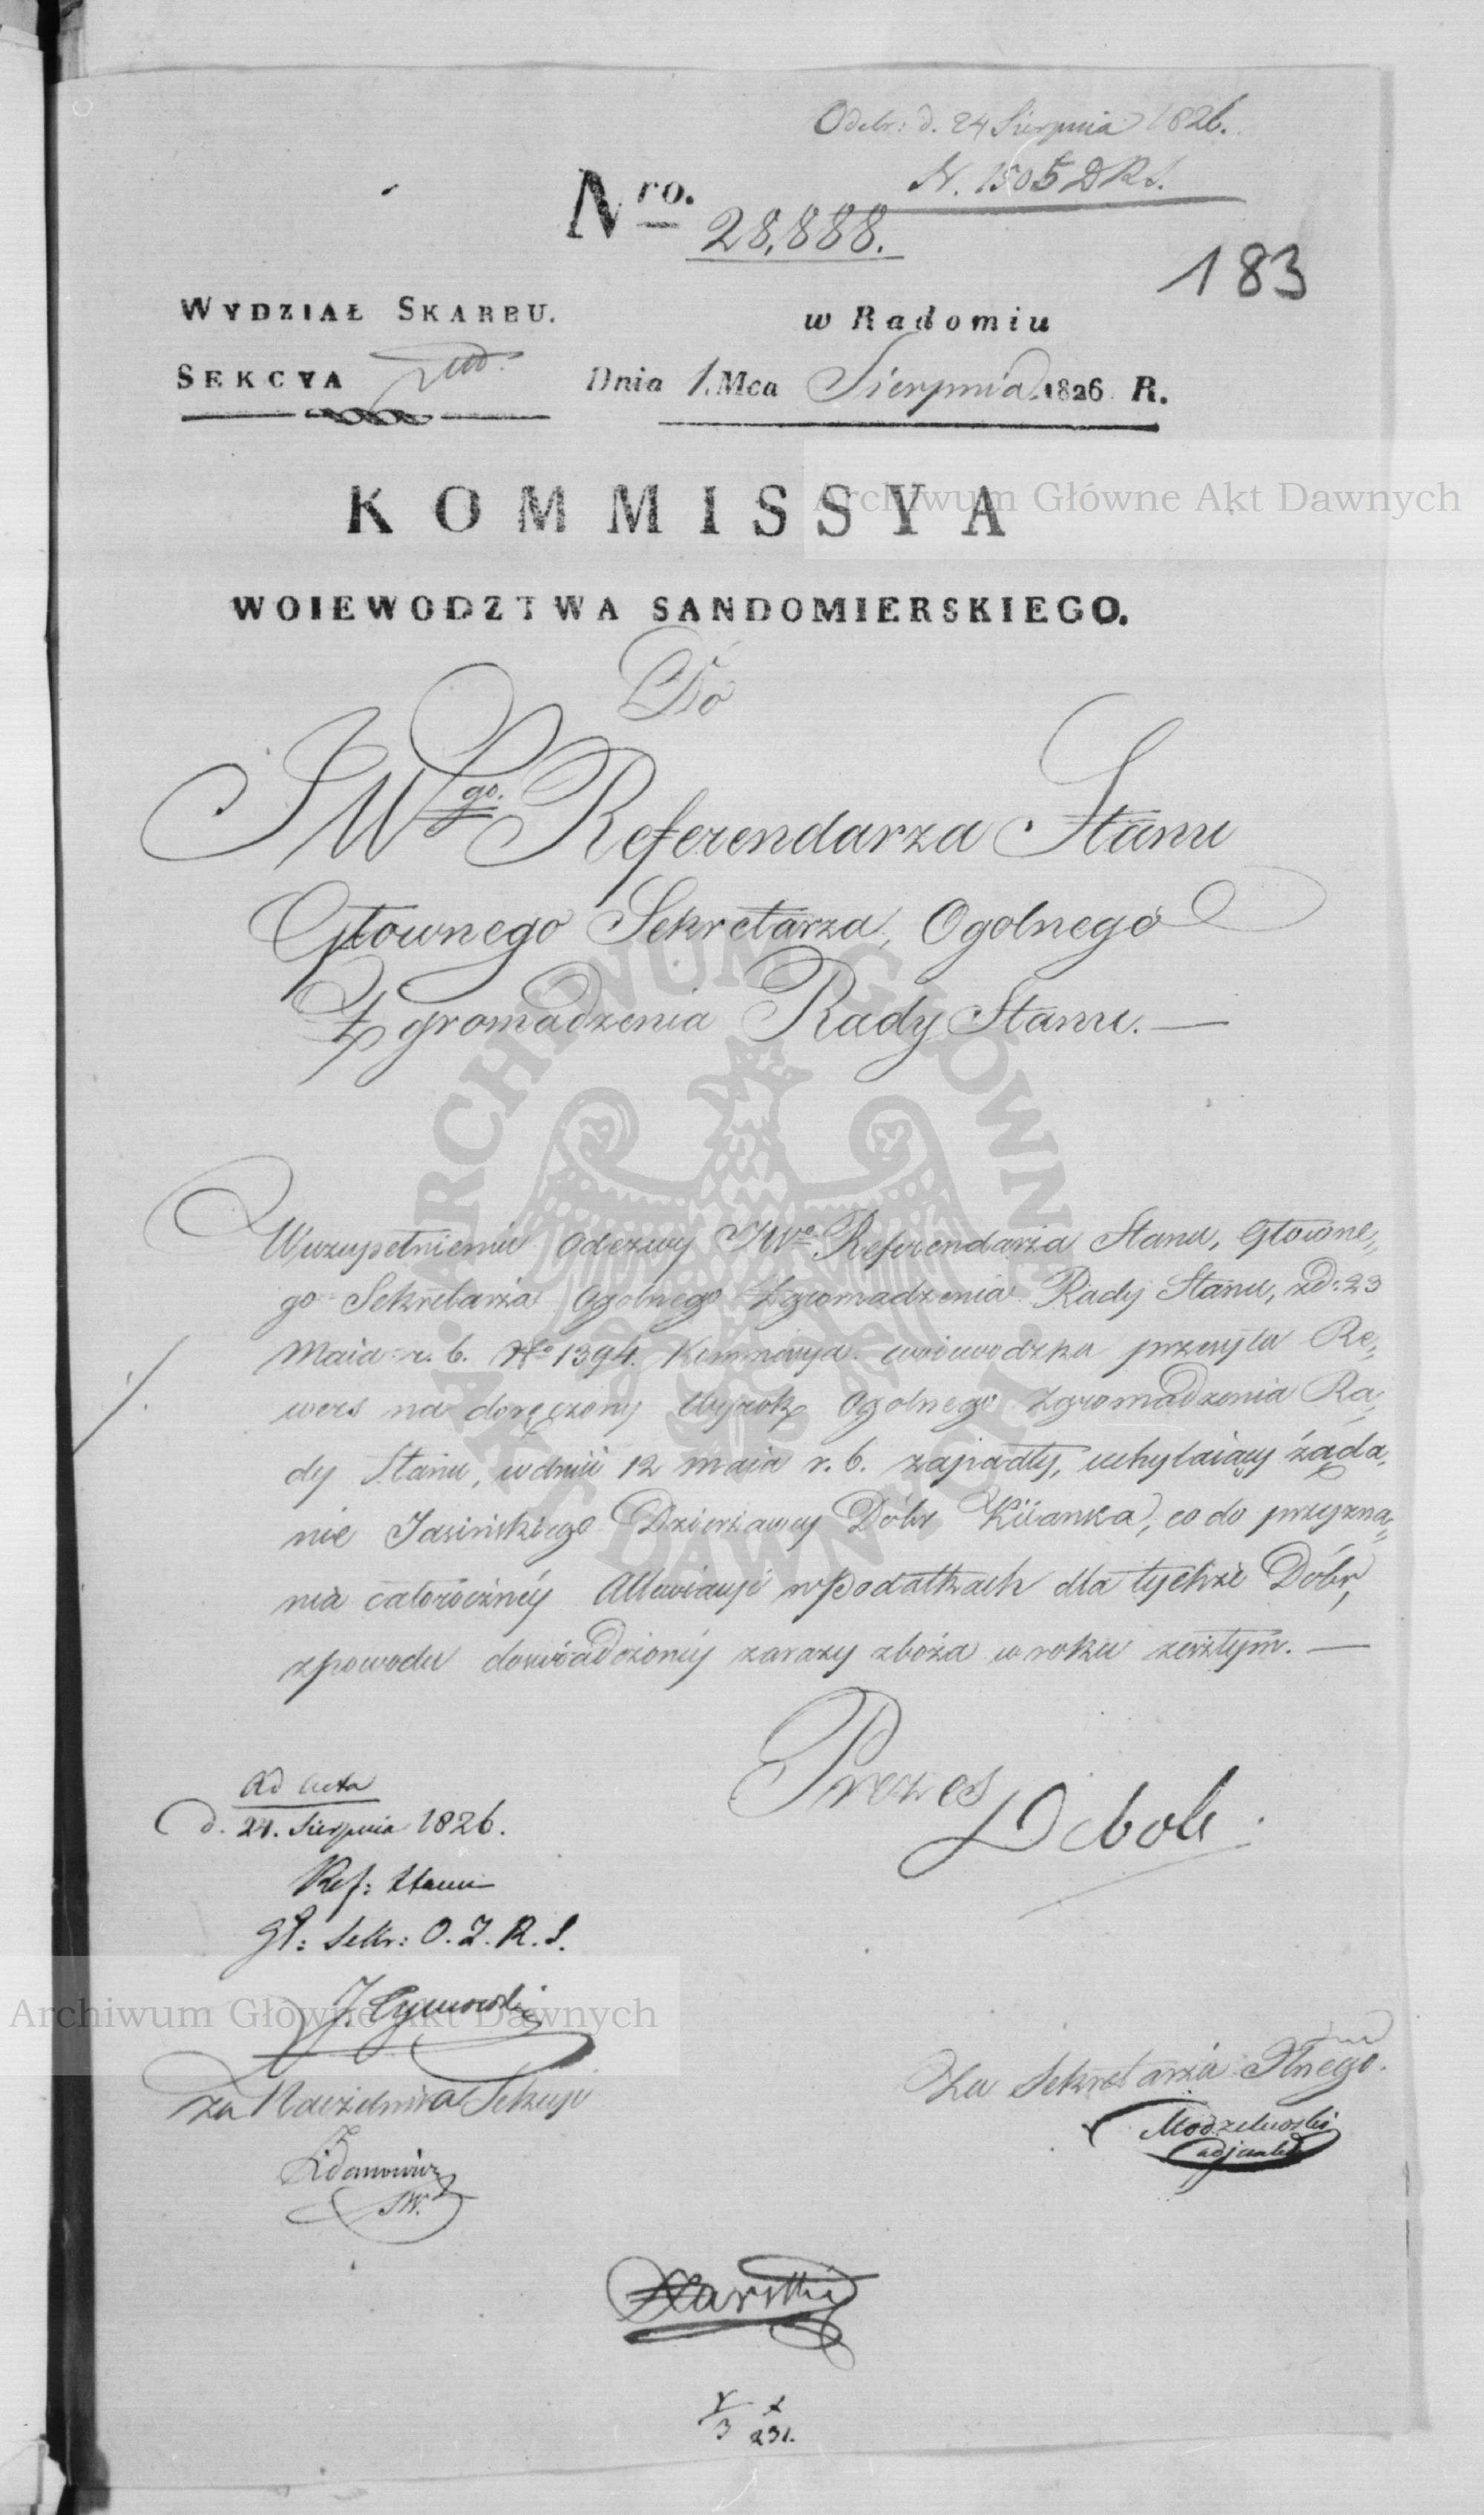 Odebr: d. 24 Sierpnia 1826.
N. 1505 DRS.
Nro. 28,888.
183
WYDZIAŁ SKARBU.
w Radomiu
SEKCYA
Dnia 1. Mca Sierpnia 1826 R.
KOMMISSYA
WOIEWODZTWA SANDOMIERSKIEGO.
Do
JWgo. Referendarza Stanu
Głownego Sekretarza, Ogolnego
Zgromadzenia Rady Stanu. —
W uzupełnieniu Odezwy JWo. Referendarza Stanu, Głowne„
go Sekretarza Ogolnego Zgromadzenia Rady Stanu, zd: 23
Maia r. b. No 1394. Kommissya woiewodzka przesyła Re„
wers na doręczony Wyrok Ogolnego Zgromadzenia Ra„
dy Stanu, w dniu 12 maja r. b. zapadły, uchylaiący żąda„
nie Jasińskiego Dzierżawcy Dóbr Kiianka, co do przyzna„
nia całorocznéy Allewiacyi w Podatkach dla tychże Dóbr,
z powodu doświadczonéy zarazy zboża w roku zeszłym. —
Prezes
Deboli
Ad Acta
d. 24. Sierpnia 1826.
Ref: Stanu
Gł: Sekr: O. Z. R. S.
J. Tymowski
za Naczelnika Sekcyi
Zdanowicz
Za Sekretarza Jlnego.
Modzelewski
adjunkt
3 231.
Archiwum Główne Akt Dawnych
ARCHIWUM GŁÓWNE AKT DAWNYCH
Archiwum Główne Akt Dawnych